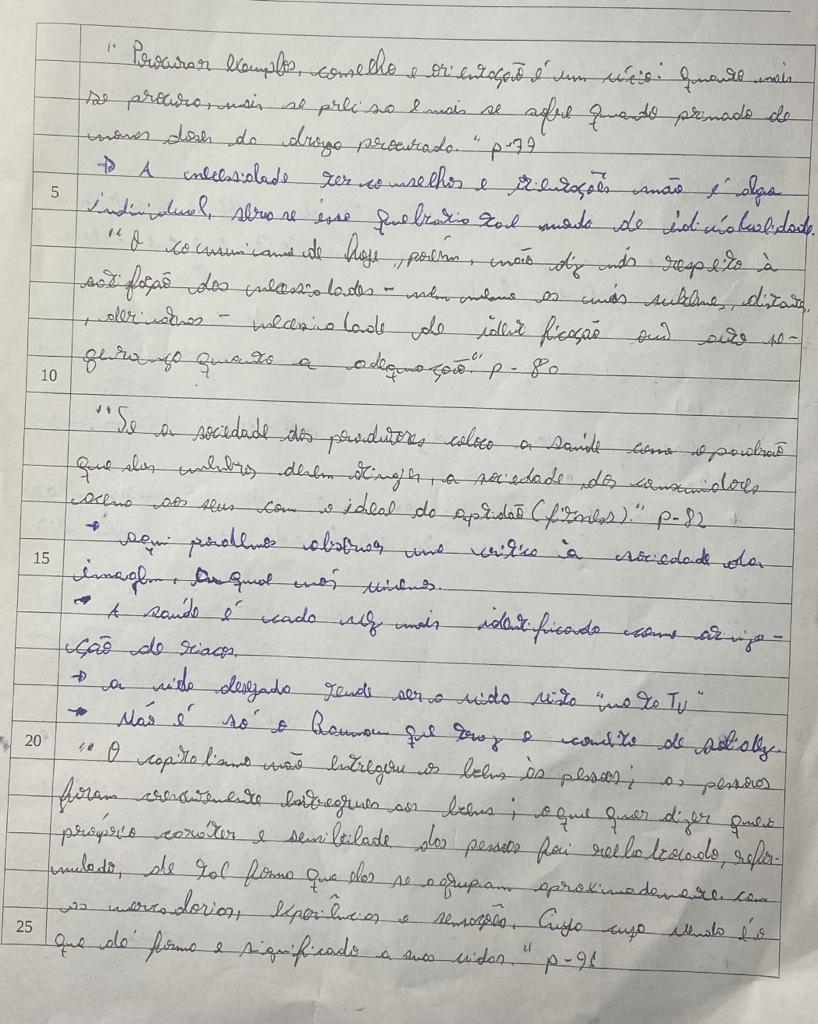 "Procurar exemplos, conselho e orientação é um vício: quanto mais
se procura, mais se precisa e mais se sofre quando privado de
novas doses da droga procurada." p-77
→ A necessidade ter conselhos e orientações não é algo
5 individual, se esse quebraria tal modo de idividualidade.
"O consumismo de hoje, porém, não diz mais respeito à
satifação das necessidades - nem mesmo as mais sublimes, distates,
, - necessidade de idetificação ou auto se-
gurança quanto a adequação." p-80
10
"Se a sociedade dos produtores coloca a saúde como o padrão
que seus membros devem atingir, a sociedade dos consumidores
acena aos seus com o ideal da aptidão (fitness)." p-82
→ aqui podemos observar uma critica à sociedade da
15 imagem, a qual nós vivemos.
→ A saúde é cada vez mais identificada como
ção de riscos.
→ a vida desejada tende ser a vida vista "na TV"
→ Não é só o Bauman que traz o de
20 "O capitalismo não entregou os bens às pessoas; as pessoas
foram crescentemente entregues aos bens; o que quer dizer que o
próprio caráter e sensibilidade das pessoas foi reelaborado, refor-
mulado, de tal forma que elas se agrupam aproximadamente com
as mercadorias, experiências e sensações. Cuja venda é o
25 que dá forma e significado a suas vidas." p-96